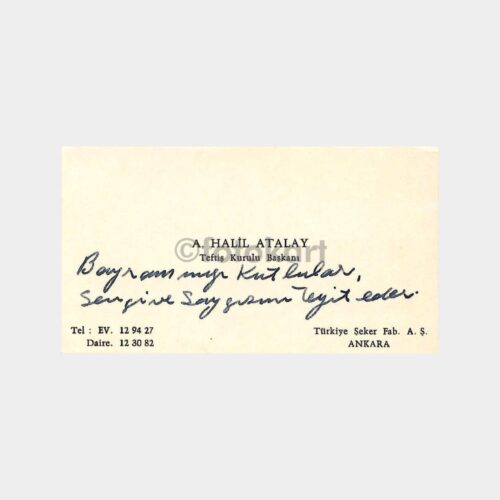 A. HALİL ATALAY
©fotokart
Teftiş Kurulu Başkanı
Bayramınızı Kutlular,
Sevgi ve Saygısını Teyit eder.
Tel : EV. 12 94 27
Daire. 12 30 82
Türkiye Şeker Fab. A. Ş.
ANKARA